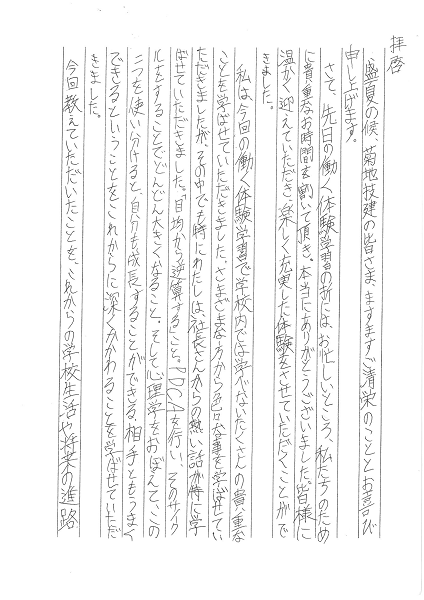 拝啓
盛夏の候、菊地技建の皆さま、ますますご清栄のこととお喜び
申し上げます。
さて、先日の働く体験学習の折には、お忙しいところ、私たちのため
に貴重なお時間を割いて頂き、本当にありがとうございました。皆様に
温かく迎えていただき、楽しく充実した体験をさせていただくことがで
きました。
私は、今回の働く体験学習で学校内では学べないたくさんの貴重な
ことを学ばせていただきました。さまざまな方から色々な事を学ばせてい
ただきましたが、その中でも特にわたしは、社長さんからの熱い話が特に学
ばせていただきました。「目的から逆算すること。」PDCAを行い、そのサイク
ルをすることでどんどん大きくなること、そして心理学をおぼえて、この
二つを使い分けると、自分も成長することができる、相手ともうまく
できるということをこれからに深くかかわることを学ばせていただ
きました。
今回教えていただいたことを、これからの学校生活や将来の進路